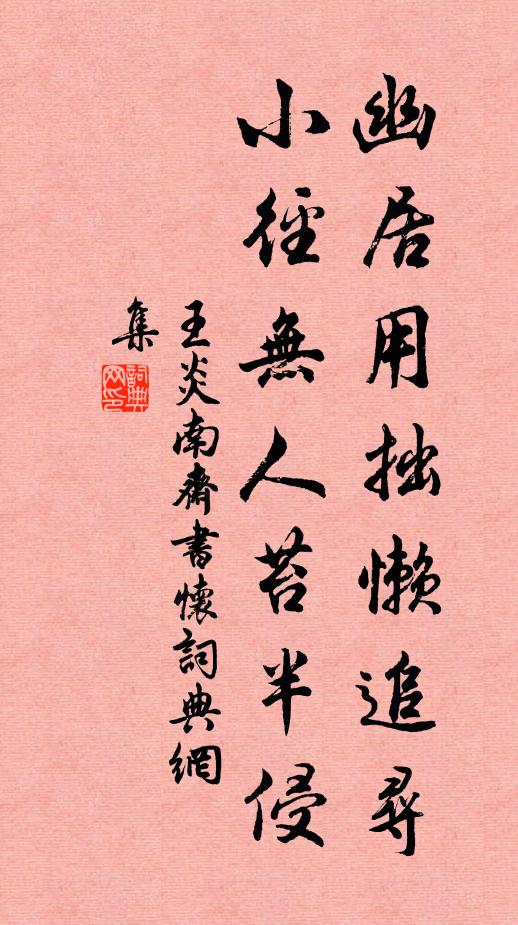 幽居用拙懶追尋
小徑無人苔半侵
王炎南齋書懷詞典網
集
詞典
网印